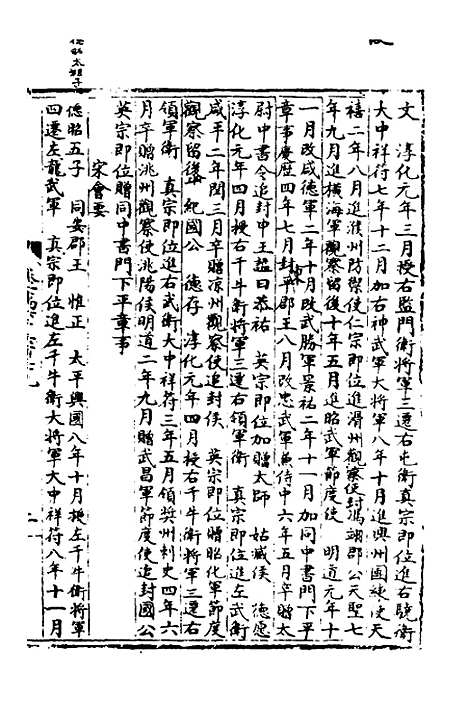 文　淳化元年三月授右監門衛將軍三遷右屯衛真宗即位進右驍衛
大中祥符七年十二月加右神武軍大將軍八年十月進興州團練使天
禧二年八月進濮州防禦使仁宗即位進滑州觀察使封馮翊郡公天聖七
年九月進橫海軍觀察留後十年五月進昭武軍節度使　明道元年十
一月改感德軍二年十月改武勝軍景祐二年十一月加同中書門下平
章事慶歷四年七月封東平郡王八月改忠武軍兼侍中六年五月卒贈太
尉中書令追封申王謚曰恭裕　英宗即位加贈太師　姑臧侯　德愿
淳化元年四月授右千牛衛將軍三遷右領軍衛　真宗即位進左武衛
咸平二年閏三月卒贈涼州觀察使追封侯　英宗即位贈昭化軍節度
觀察留後　紀國公　德存　淳化元年四月授右千牛衛將軍三遷右
領軍衛　真宗即位進右武衛大中祥符三年五月領獎州刺史四年六
月卒贈洮州觀察使洮陽侯明道二年九月贈武昌軍節度使追封國公
英宗即位贈同中書門下平章事
宋會要
德昭太祖子
德昭五子　同安郡王　惟正　太平興國八年十月授左千牛衛將軍
四遷左龍武軍　真宗即位進左千牛衛大將軍大中祥符八年十一月